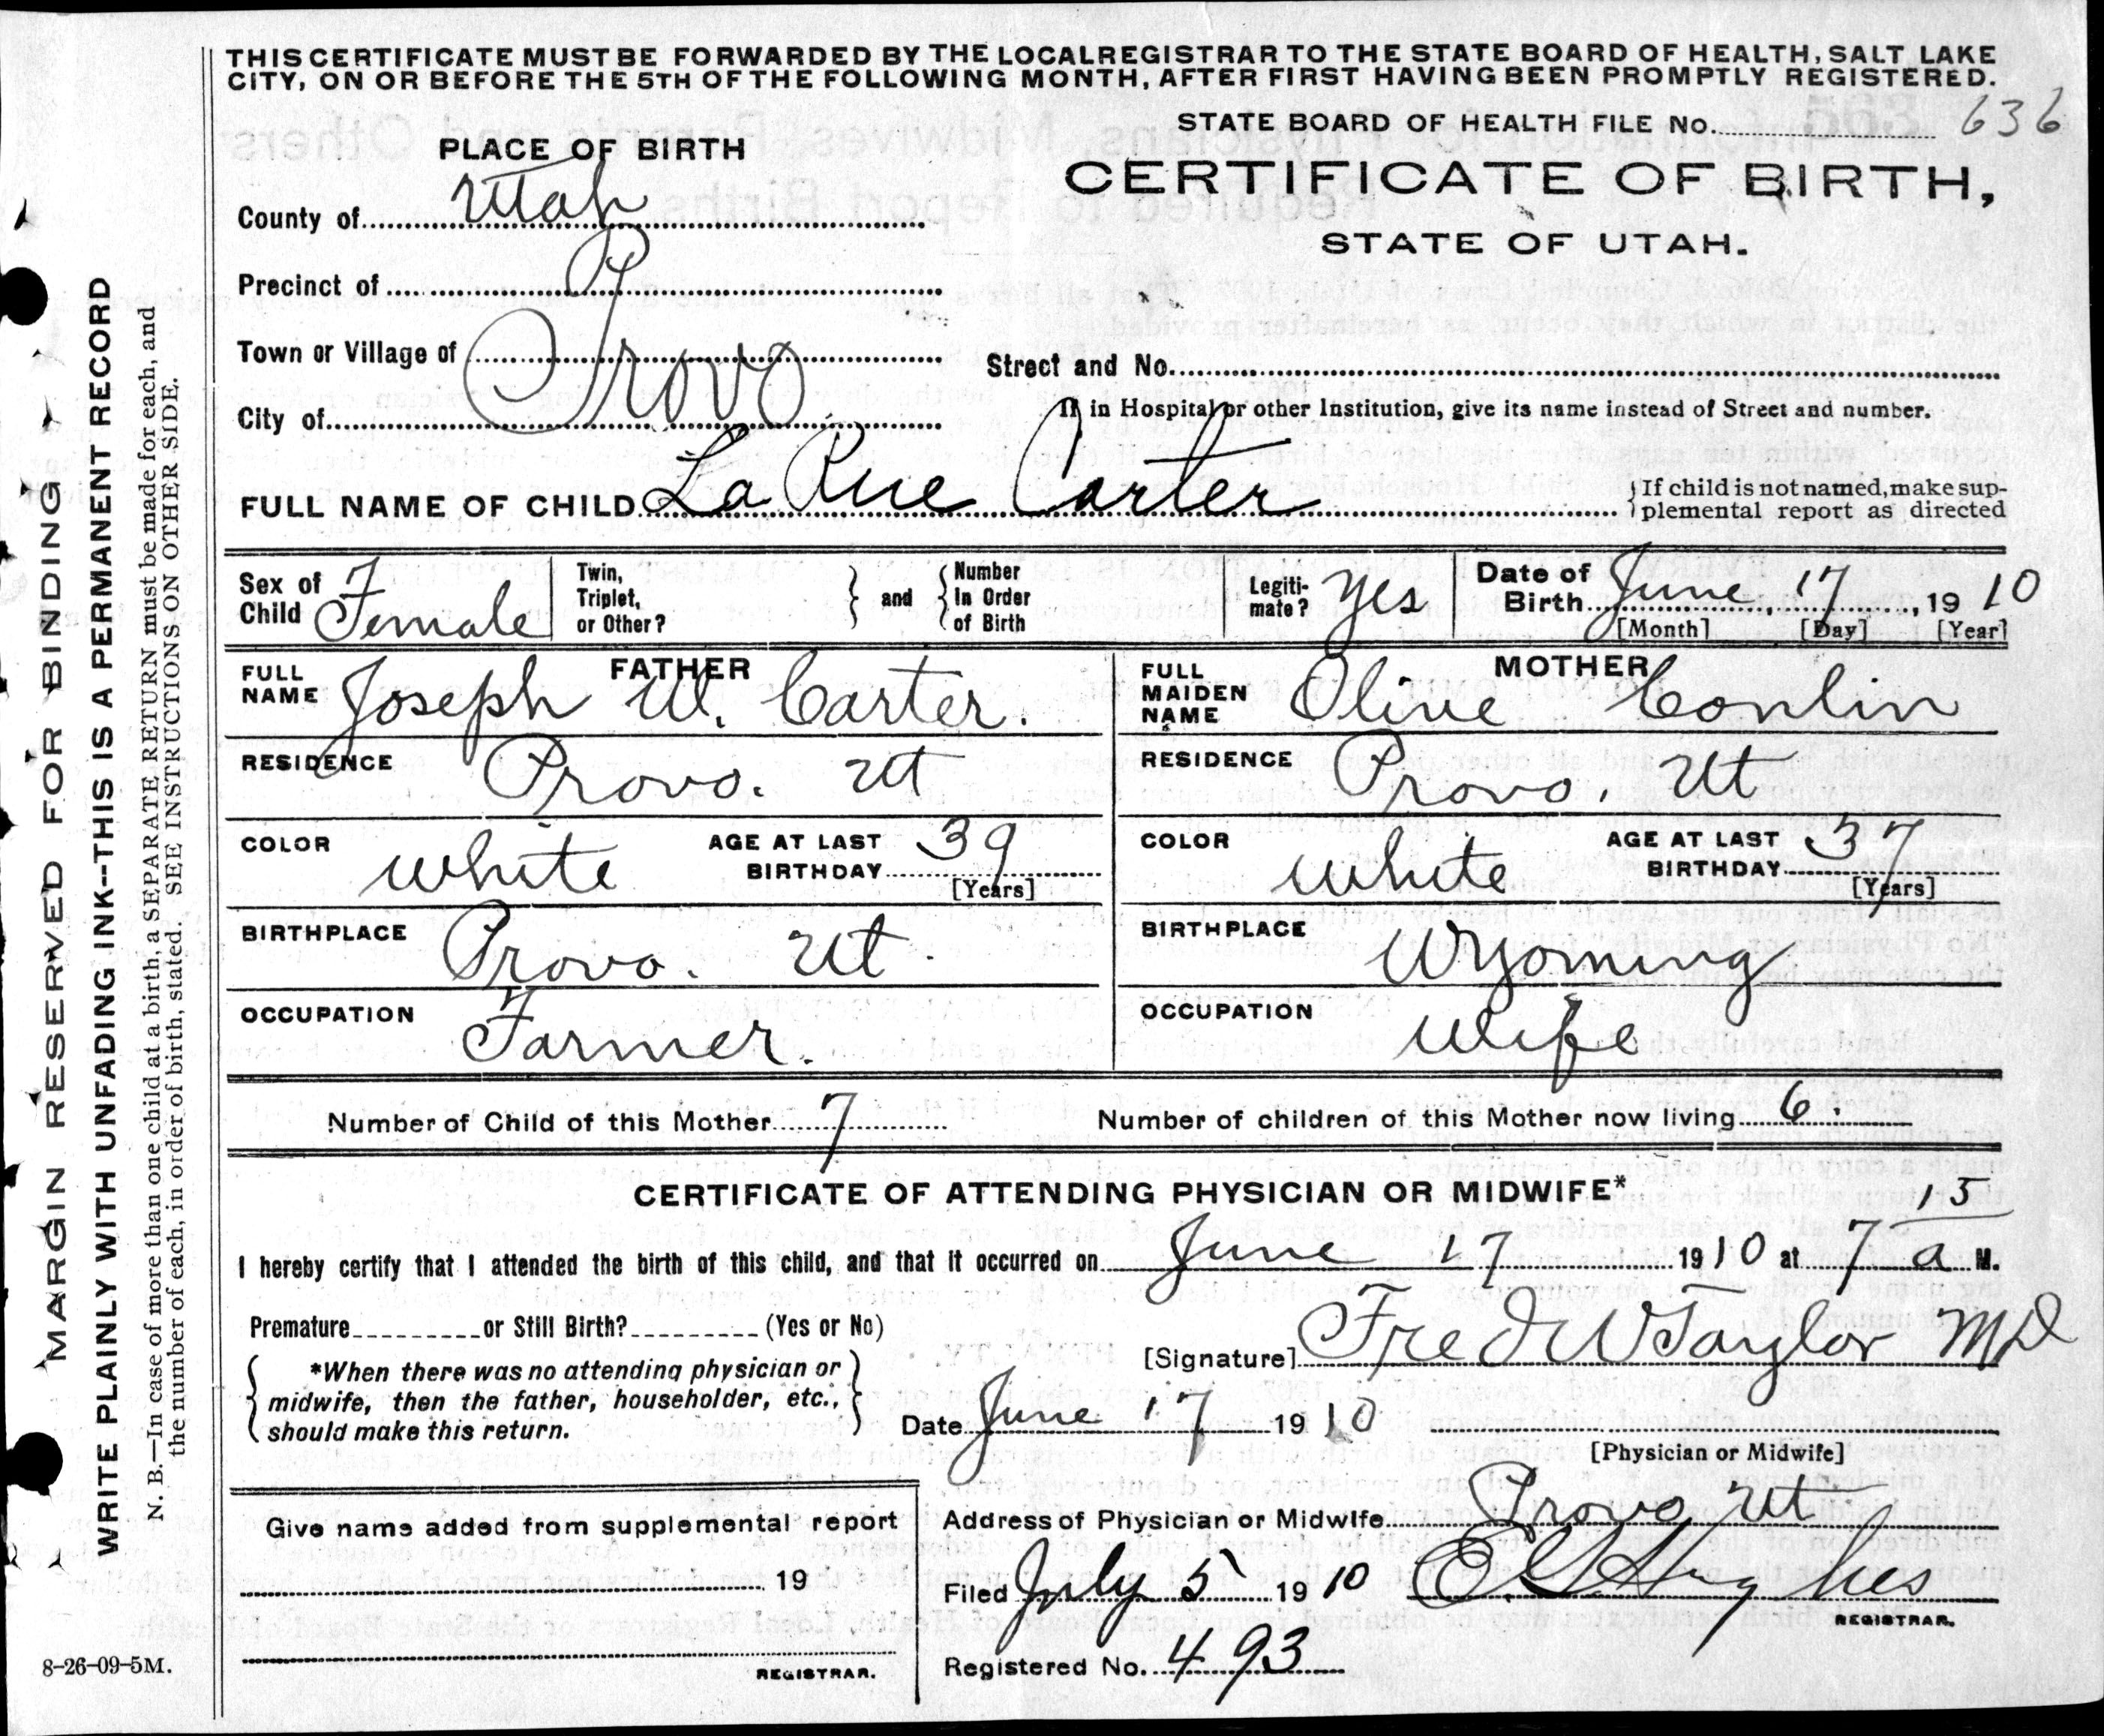 THIS CERTIFICATE MUST BE FORWARDED BY THE LOCAL REGISTRAR TO THE STATE BOARD OF HEALTH, SALT LAKE
CITY, ON OR BEFORE THE 5TH OF THE FOLLOWING MONTH, AFTER FIRST HAVING BEEN PROMPTLY REGISTERED.
STATE BOARD OF HEALTH FILE No. 636
PLACE OF BIRTH
CERTIFICATE OF BIRTH,
STATE OF UTAH.
County of Utah
Precinct of
Town or Village of Provo
Street and No.
City of
If in Hospital or other Institution, give its name instead of Street and number.
FULL NAME OF CHILD La Rue Carter
If child is not named, make sup-
plemental report as directed
Sex of Child Female
Twin, Triplet, or Other?
and
Number In Order of Birth
Legiti-mate? Yes
Date of Birth June, 17, 1910
[Month] [Day] [Year]
FATHER
FULL NAME Joseph W. Carter.
MOTHER
FULL MAIDEN NAME Olive Conlin
RESIDENCE Provo. Ut
RESIDENCE Provo, Ut
COLOR white AGE AT LAST BIRTHDAY 39 [Years]
COLOR White AGE AT LAST BIRTHDAY 37 [Years]
BIRTHPLACE Provo. Ut.
BIRTHPLACE Wyoming
OCCUPATION Farmer.
OCCUPATION Wife
Number of Child of this Mother 7
Number of children of this Mother now living 6.
CERTIFICATE OF ATTENDING PHYSICIAN OR MIDWIFE*
I hereby certify that I attended the birth of this child, and that it occurred on June 17 1910 at 7 15 a M.
Premature or Still Birth? (Yes or No)
[Signature] Fred W Taylor MD
*When there was no attending physician or
midwife, then the father, householder, etc.,
should make this return.
Date June 17 1910
[Physician or Midwife]
Give name added from supplemental report
19
REGISTRAR.
Address of Physician or Midwife Provo Ut
Filed July 5 1910 Hughes
REGISTRAR.
Registered No. 493
8-26-09-5M.
MARGIN RESERVED FOR BINDING
WRITE PLAINLY WITH UNFADING INK--THIS IS A PERMANENT RECORD
N. B.—In case of more than one child at a birth, a SEPARATE RETURN must be made for each, and
the number of each, in order of birth, stated. SEE INSTRUCTIONS ON OTHER SIDE.